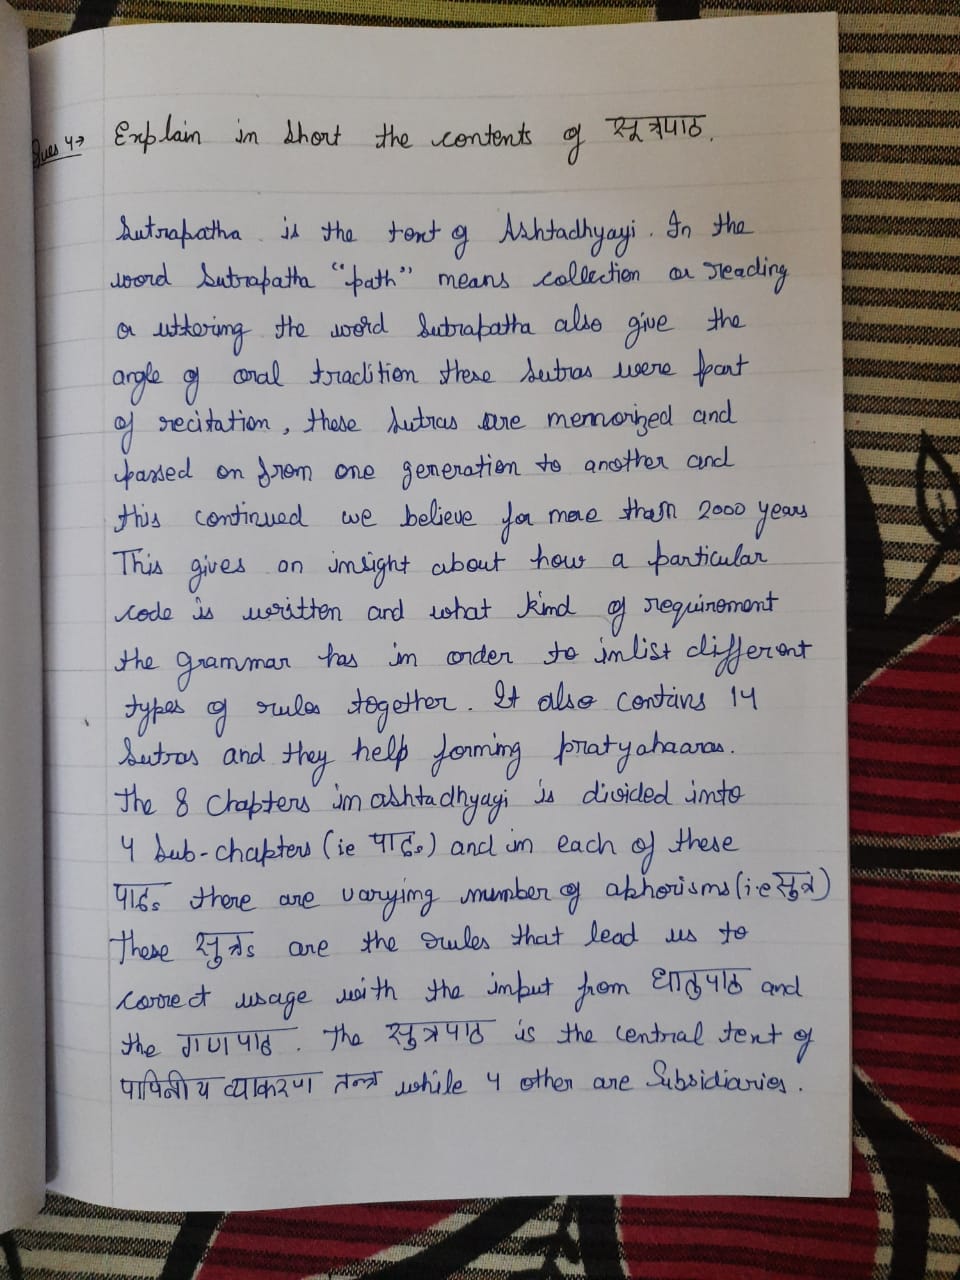 Ques 4→ Explain in short the contents of सूत्रपाठ.
Sutrapatha is the text of Ashtadhyayi. In the
word Sutrapatha "path" means collection or reading
or uttering the word Sutrapatha also give the
angle of oral tradition these sutras were part
of recitation, these sutras are memorized and
passed on from one generation to another and
this continued we believe for more than 2000 years
This gives an insight about how a particular
code is written and what kind of requirement
the grammar has in order to inlist different
types of rules together. It also contains 14
Sutras and they help forming pratyahaaras.
The 8 Chapters in ashtadhyayi is divided into
4 Sub-chapters (ie पादs) and in each of these
पादs there are varying number of aphorisms (i.e सूत्र)
These सुत्रs are the rules that lead us to
correct usage with the input from धातुपाठ and
the गणपाठ. The सुत्रपाठ is the central text of
पाणिनीय व्याकरण तन्त्र while 4 other are Subsidiaries.